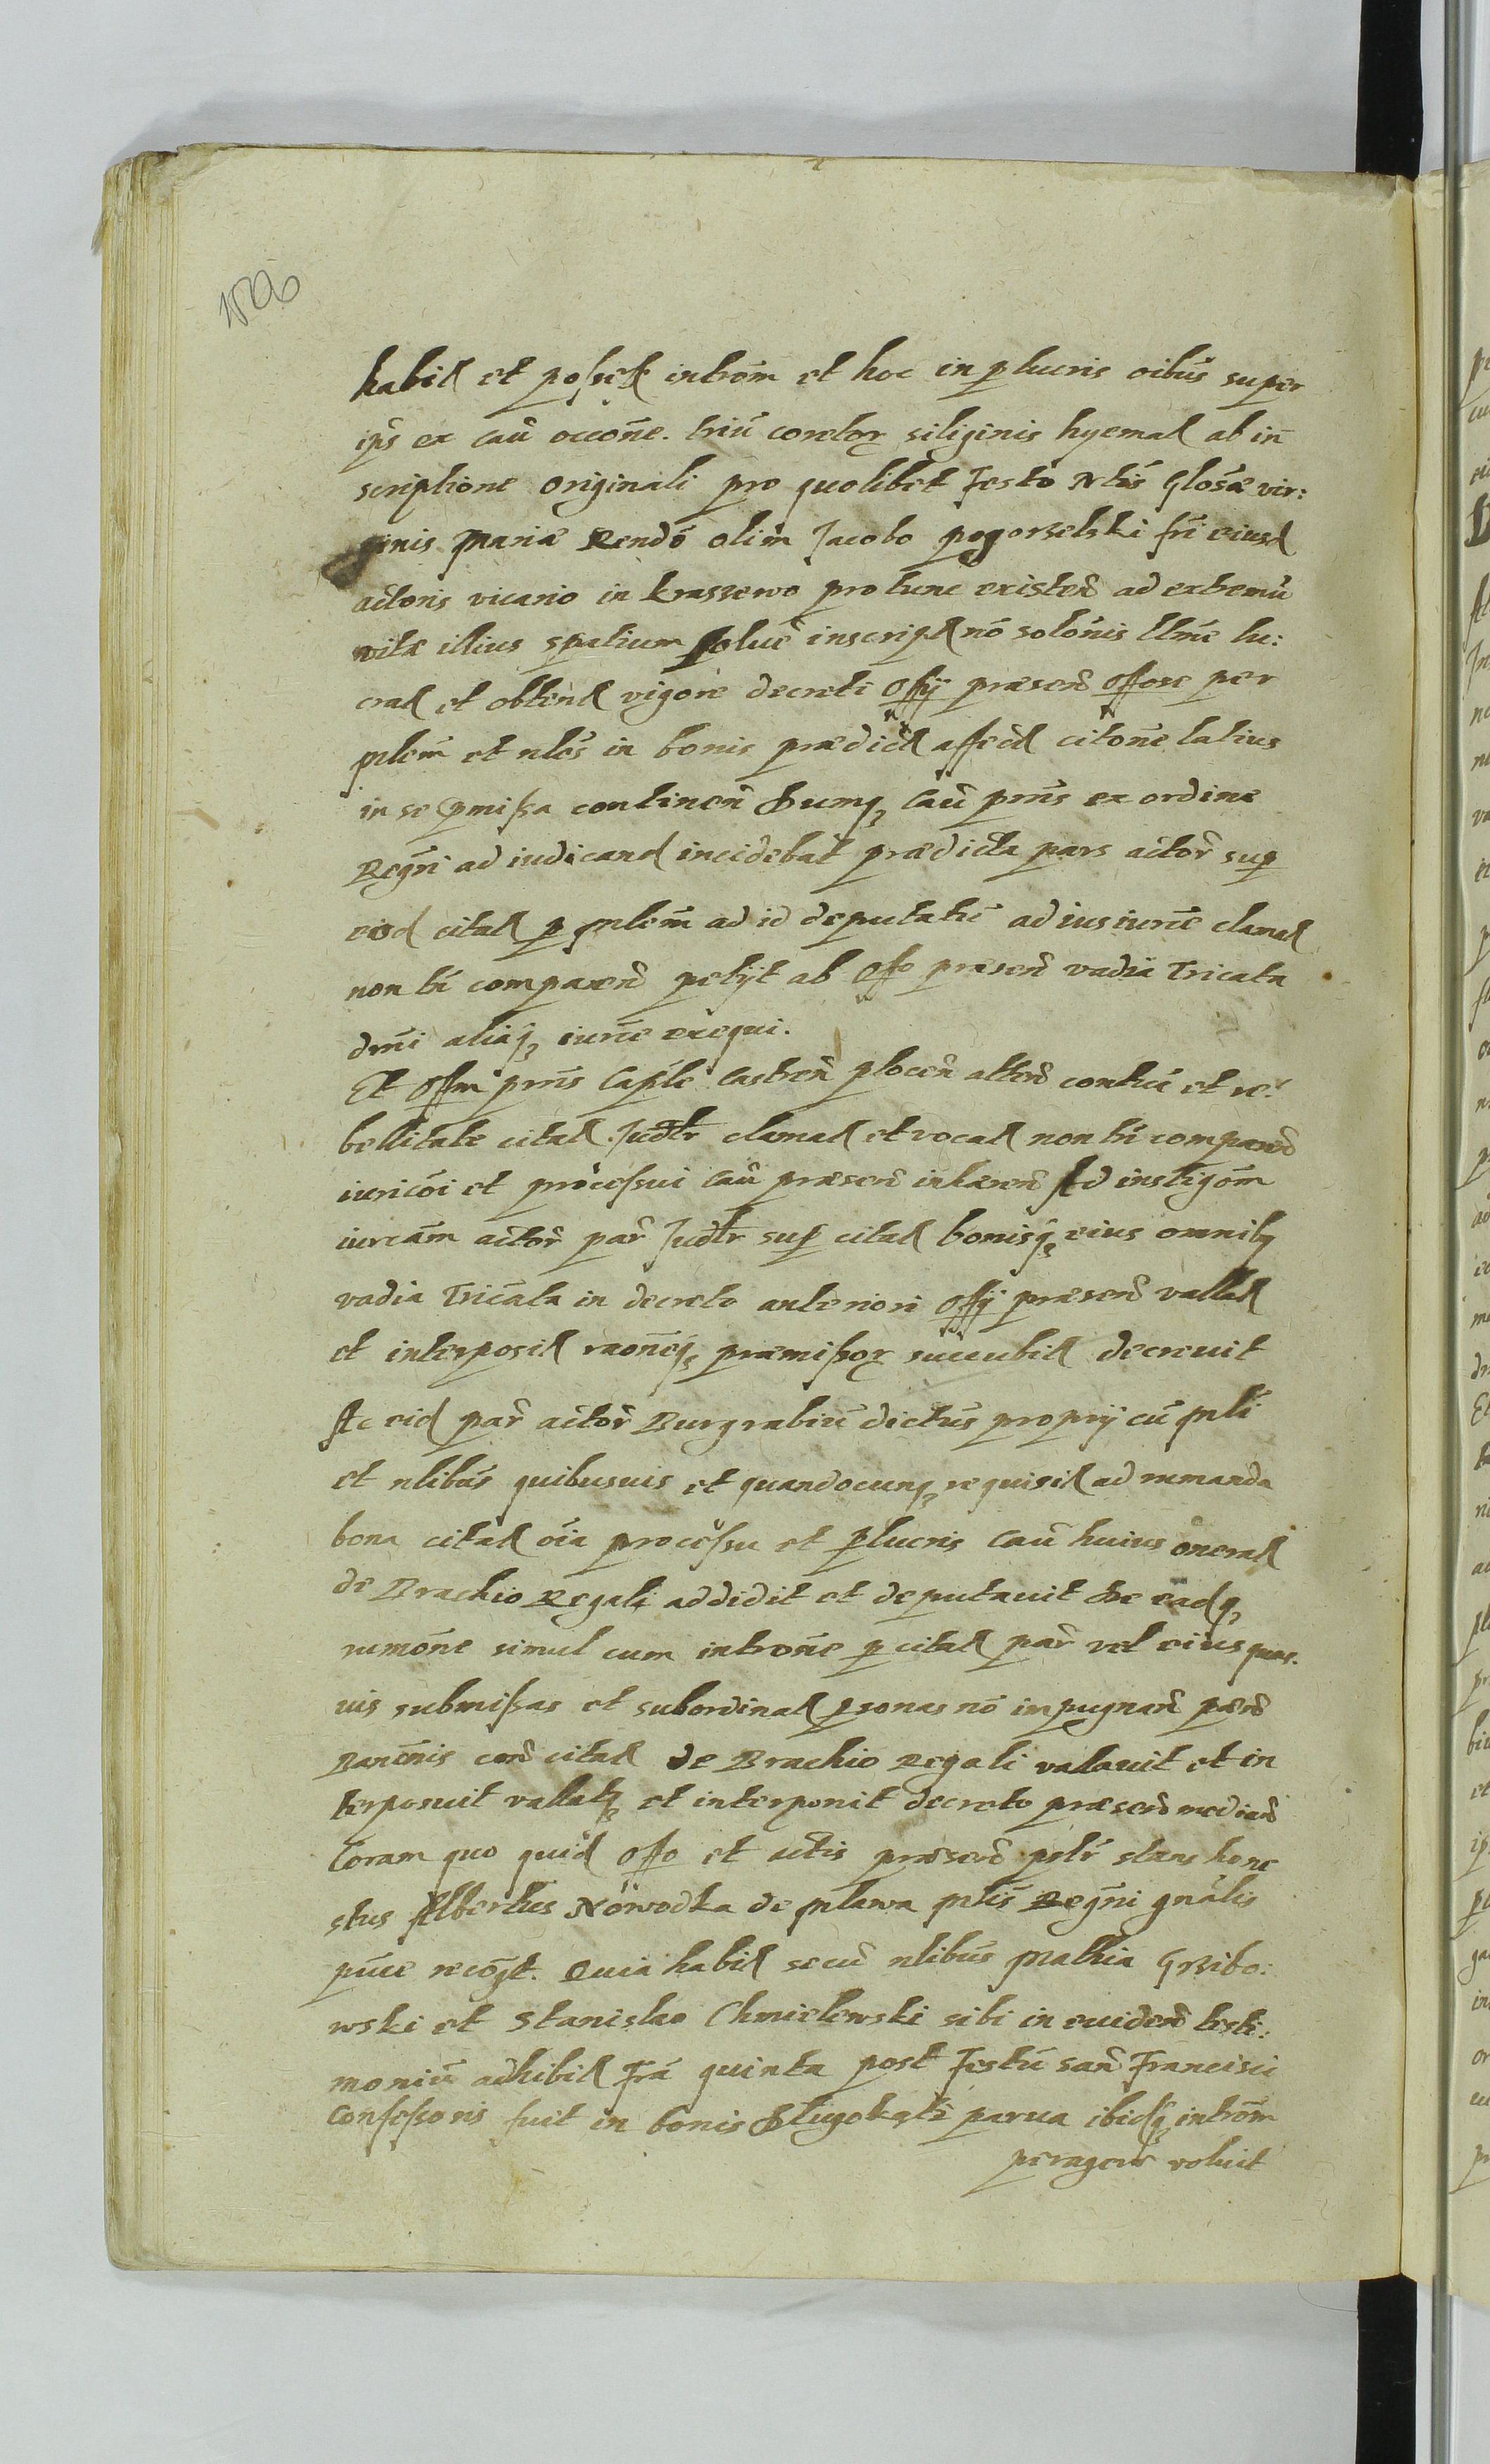 habit et possess introm et hoc in p lucris oibus super
ips ex cau occone. triu coretor siliginis hyemal ab in
scriptione originali pro quolibet Festo Ntis Glosæ vir:
ginis Mariæ Rendo olim Jacobo pogorzelski fri eiusd
actoris vicario in krassewo pro tunc existen ad extremu
vitæ illius spatium solue inscript no solonis ltme lu:
crat et obtent vigore decreti Offij præsen Offose per
mlem et nles in bonis prædict affect citone latius
in se pmissa continen Dumq cau pms ex ordine
Regri ad iudicand incidebat prædicta pars actor sup
eod citat p mlem ad id deputatu ad ius iurie clamat
non tn comparen petijt ab Offo præsen vadia Tricata
dmi aliaq iurie exequi.
Et Offm pms Caple Castren plocen atten contu et re:
bellitate citat Judtr clamat et vocat non tn comparen
iuricoi et processui cau præsen inhæren Ad instigom
iurcam actor par Judtr sup citat bonisq eius omnib
vadia Tricata in decreto anteriori Offij præsen vallat
et interposit raoneq præmissor succubit decrevit
Ac eid par actor Burgrabiu dictus proprij cu mli
et nlibus quibusuis et quandocunq requisit ad rumanda
bona citat oia processu et p lucris cau huius onerat
de Brachio Regali addidit et deputauit De eadq
rumone simul cum introne p citat par vel eius quas.
uis submissas et subordinat psonas no impugnan pæn
Banonis con citat de Brachio Regali vallavit et in
terposuit vallatq et interponit decreto præsen median
Coram quo quid Offo et actis præsen psltr stans hone
stus Albertus Nowodka de mlawa mlis Regni gnalis
pme recogt. Quia habit secu nlibus Mathia Grzibo:
wski et Stanislao Chmielewski sibi in euiden testi:
moniu adhibit Fra quinta post Festu san Francisci
Confessoris fuit in bonis Dlugokąti parua ibidq introm
peragere voluit